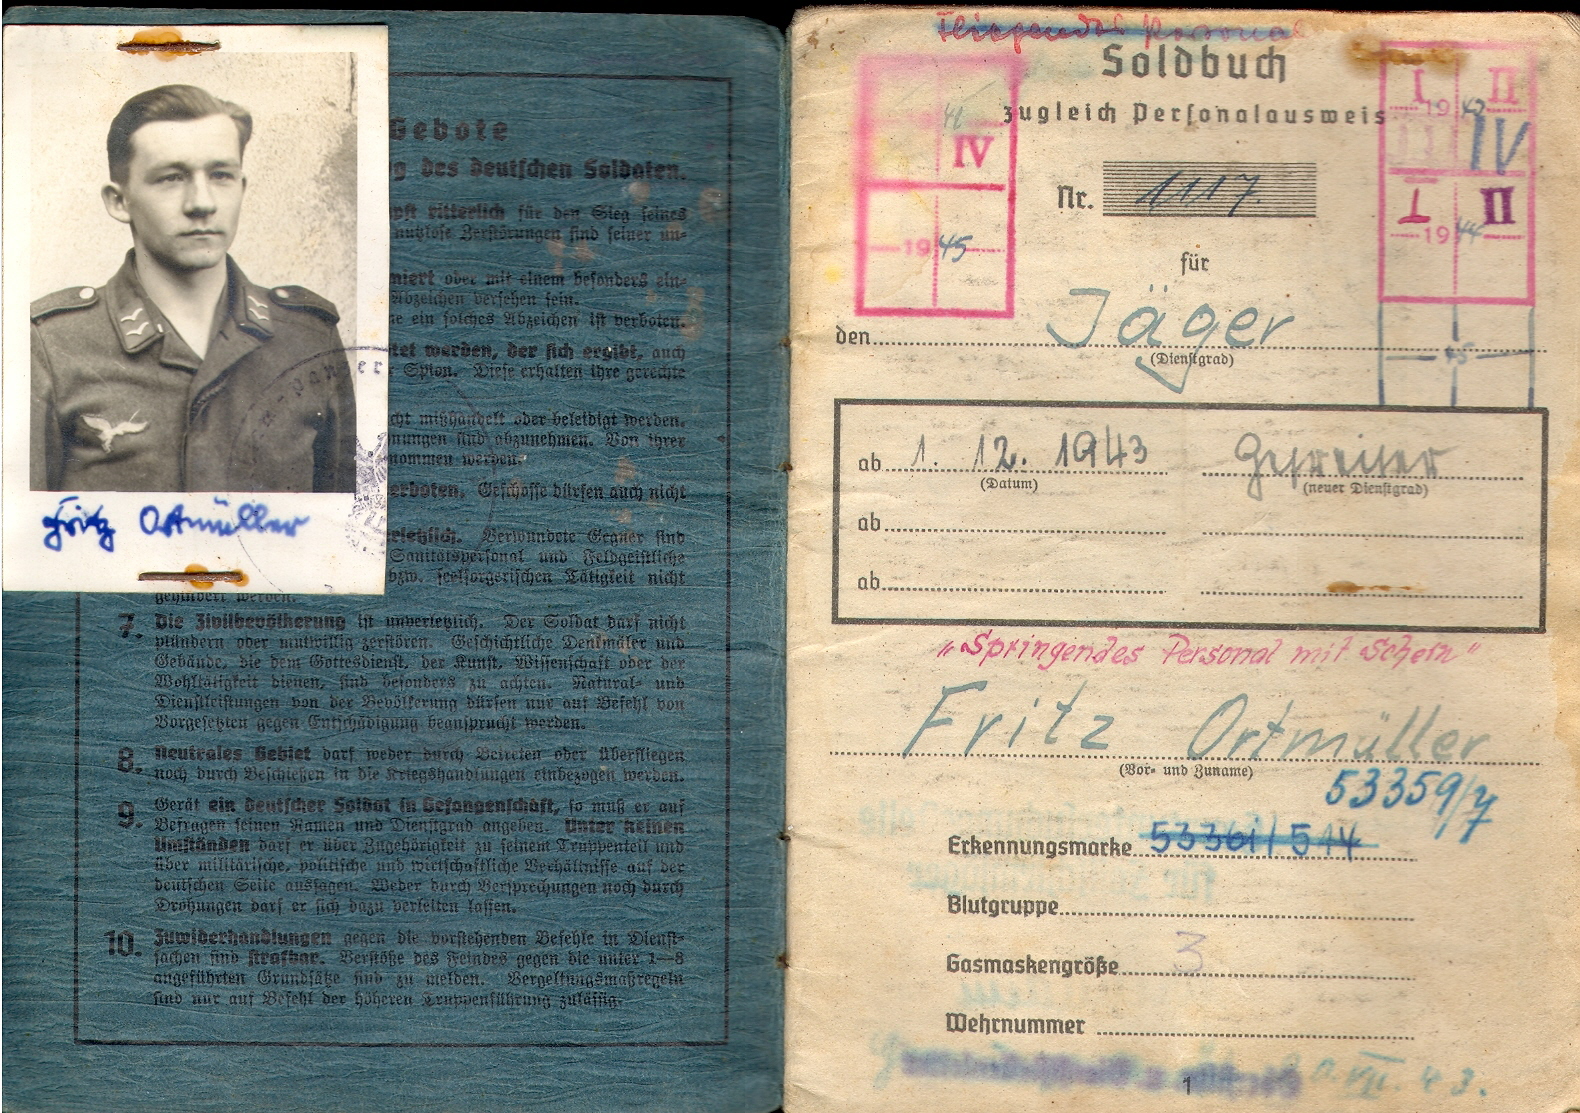 Gebote
g des deutschen Soldaten.
pft ritterlich für den Sieg seines
nutzlose Zerstörungen sind seiner un-
miert oder mit einem besonders ein-
Abzeichen versehen sein.
ne ein solches Abzeichen ist verboten.
tet werden, der sich ergibt, auch
Spion. Diese erhalten ihre gerechte
cht mißhandelt oder beleidigt werden.
nungen sind abzunehmen. Von ihrer
nommen werden.
erboten. Geschosse dürfen auch nicht
rletzlich. Verwundete Gegner sind
Sanitätspersonal und Feldgeistliche
bzw. seelsorgerischen Tätigkeit nicht
gehindert werden.
Fritz Ortmüller
7. Die Zivilbevölkerung ist unverletzlich. Der Soldat darf nicht
plündern oder mutwillig zerstören. Geschichtliche Denkmäler und
Gebäude, die dem Gottesdienst, der Kunst, Wissenschaft oder der
Wohltätigkeit dienen, sind besonders zu achten. Natural- und
Dienstleistungen von der Bevölkerung dürfen nur auf Befehl von
Vorgesetzten gegen Entschädigung beansprucht werden.
8. Neutrales Gebiet darf weder durch Betreten oder Überfliegen
noch durch Beschießen in die Kriegshandlungen einbezogen werden.
9. Gerät ein deutscher Soldat in Gefangenschaft, so muß er auf
Befragen seinen Namen und Dienstgrad angeben. Unter keinen
Umständen darf er über Zugehörigkeit zu seinem Truppenteil und
über militärische, politische und wirtschaftliche Verhältnisse auf der
deutschen Seite aussagen. Weder durch Versprechungen noch durch
Drohungen darf er sich dazu verleiten lassen.
10. Zuwiderhandlungen gegen die vorstehenden Befehle in Dienst-
sachen sind strafbar. Verstöße des Feindes gegen die unter 1—8
angeführten Grundsätze sind zu melden. Vergeltungsmaßregeln
sind nur auf Befehl der höheren Truppenführung zulässig.
Fliegendes Personal
Soldbuch
zugleich Personalausweis
IV
1945
I II
1943
IV
I II
1944
45
Nr. 1117.
für
den Jäger
(Dienstgrad)
ab 1. 12. 1943 Gefreiter
(Datum) (neuer Dienstgrad)
ab
ab
"Springendes Personal mit Schein"
Fritz Ortmüller
(Vor- und Zuname)
53359/7
Erkennungsmarke 53361/544
Blutgruppe
Gasmaskengröße 3
Wehrnummer
1